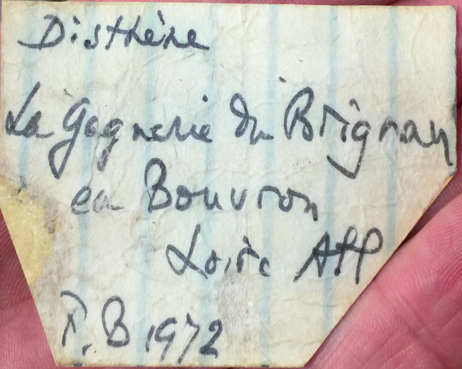 Disthène
La Gagnerie du Brignan
en Bouvron
Loire Atl
P.B 1972